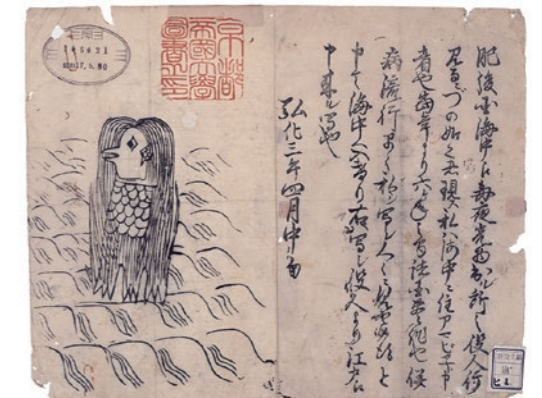 肥後国海中え毎夜光物出ル所之役人行
見るニづの如く者現ス私ハ海中ニ住アマビヱト申
者也當年より六ヶ年之間諸国豊作也併
病流行早々私シ写シ人々ニ見せ候得と
申て海中へ入けり右写シ役人より江戸え
申来ル写也
弘化三年四月中旬
京都
帝國大學
圖書之印